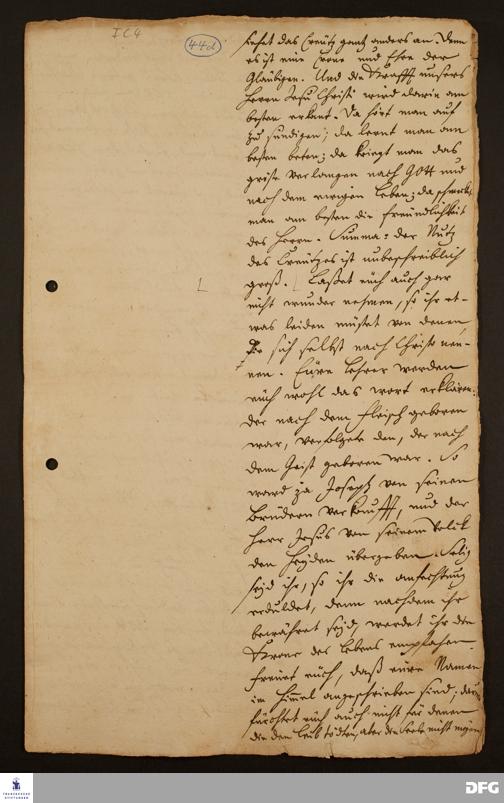 I C 4
44d
siehet das Creutz gantz anders an. Denn
es ist eine Crone und Ehre der
Gläubigen. Und die Krafft unsers
Herrn Jesu Christi wird darin am
besten erkent. Da höret man auf
zu sündigen; da lernt man am
besten beten; da kriegt man das
gröste Verlangen nach Gott und
nach dem ewigen Leben; da schmeckt
man am besten die Freundlichkeit
des Herrn. Summa: der Nutz
des Creutzes ist unbeschreiblich
groß. Laßet euch auch gar
nicht wunder nehmen, so ihr et-
was leiden müstet von denen,
die sich selbst nach Christo nen-
nen. Eure Lehrer werden
euch wohl das wort erklären:
der nach dem Fleisch geboren
war, verfolgete den, der nach
dem Geist geboren war. So
ward ja Joseph von seinen
Brüdern verkaufft, und der
Herr Jesus von seinem Volck
den Heyden übergeben. Selig
seyd ihr, so ihr die anfechtung
erduldet, denn nachdem ihr
bewähret seyd, werdet ihr die
Krone des Lebens empfahen.
Freuet euch, daß eure Namen
im Himmel angeschrieben sind;
fürchtet euch auch nicht für denen
die den Leib tödten, aber die Seele nicht mögen
FRANCKESCHE STIFTUNGEN
DFG